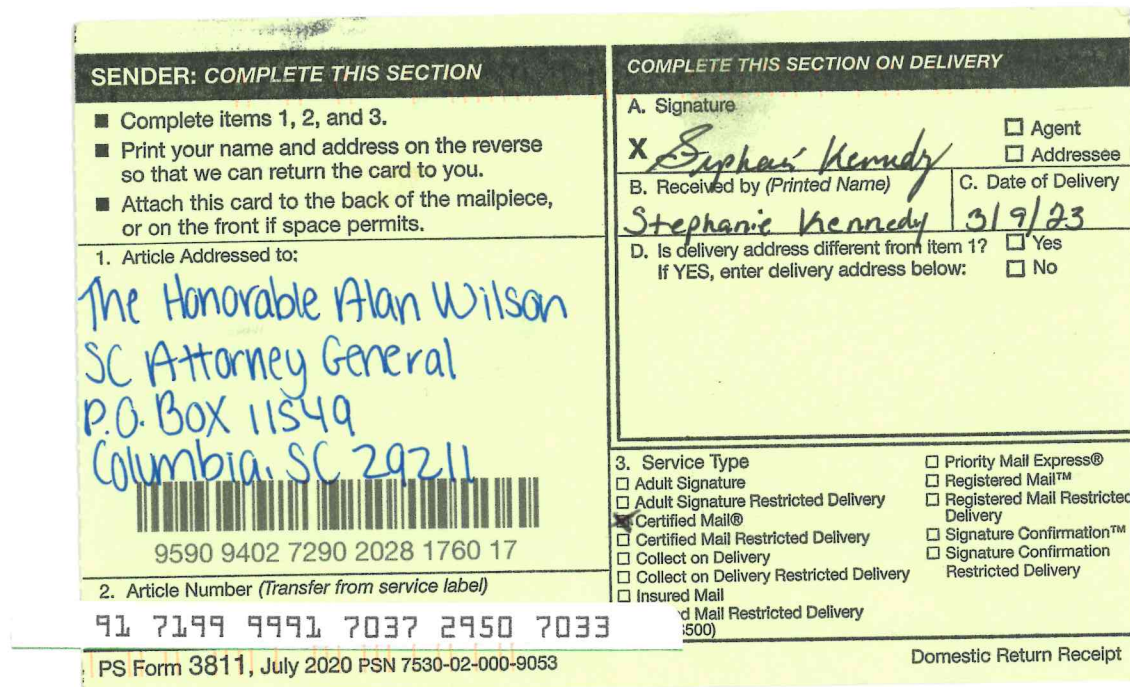 SENDER: COMPLETE THIS SECTION
■ Complete items 1, 2, and 3.
■ Print your name and address on the reverse
so that we can return the card to you.
■ Attach this card to the back of the mailpiece,
or on the front if space permits.
1. Article Addressed to:
The Honorable Alan Wilson
SC Attorney General
P.O. Box 11549
Columbia, SC 29211
9590 9402 7290 2028 1760 17
2. Article Number (Transfer from service label)
91 7199 9991 7037 2950 7033
PS Form 3811, July 2020 PSN 7530-02-000-9053
COMPLETE THIS SECTION ON DELIVERY
A. Signature
X Stephanie Kennedy
☐ Agent
☐ Addressee
B. Received by (Printed Name)
Stephanie Kennedy
C. Date of Delivery
3/9/23
D. Is delivery address different from item 1? ☐ Yes
If YES, enter delivery address below: ☐ No
3. Service Type
☐ Adult Signature
☐ Adult Signature Restricted Delivery
☒ Certified Mail®
☐ Certified Mail Restricted Delivery
☐ Collect on Delivery
☐ Collect on Delivery Restricted Delivery
☐ Insured Mail
d Mail Restricted Delivery
500)
☐ Priority Mail Express®
☐ Registered Mail™
☐ Registered Mail Restricted
Delivery
☐ Signature Confirmation™
☐ Signature Confirmation
Restricted Delivery
Domestic Return Receipt